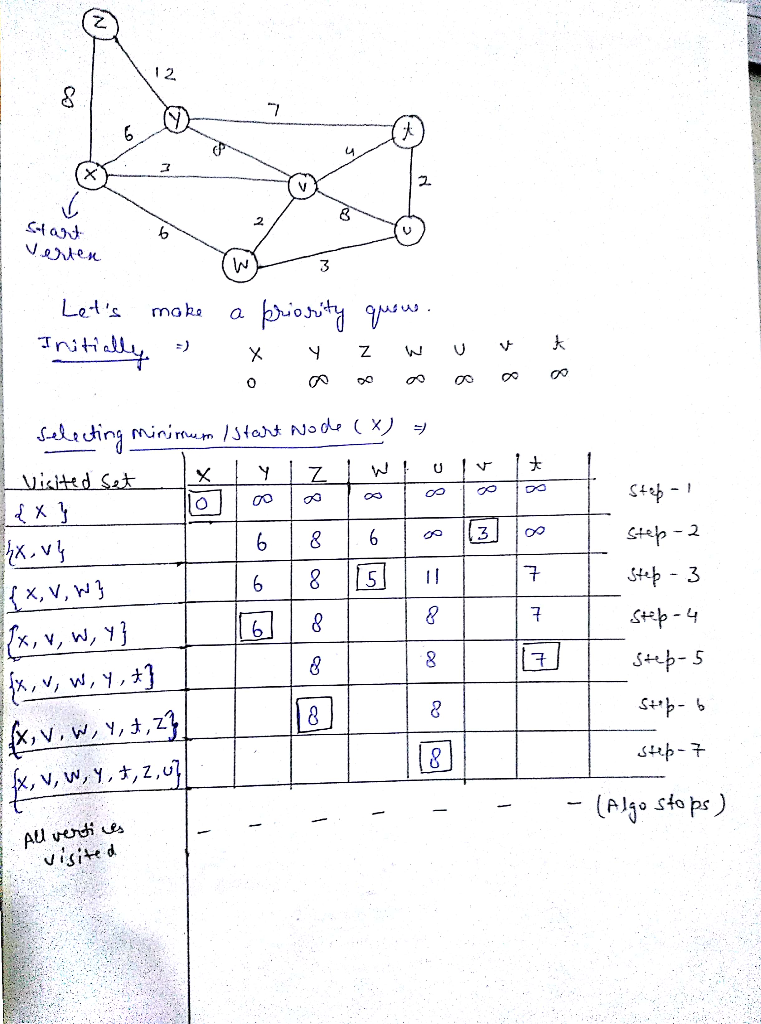 Z
12
8
Y
7
t
6
8
4
X
3
V
2
Start
Vertex
6
2
8
U
W
3
Let's make a priority queue.
Initially => X Y Z W U V t
0 ∞ ∞ ∞ ∞ ∞ ∞
Selecting minimum / Start Node (X) =>
Visited Set X Y Z W U V t
{X} 0 ∞ ∞ ∞ ∞ ∞ ∞ Step - 1
{X, V} 6 8 6 ∞ 3 ∞ Step - 2
{X, V, W} 6 8 5 11 7 Step - 3
{X, V, W, Y} 6 8 8 7 Step - 4
{X, V, W, Y, t} 8 8 7 Step - 5
{X, V, W, Y, t, Z} 8 8 Step - 6
{X, V, W, Y, t, Z, U} 8 Step - 7
All vertices - - - - - - - (Algo stops)
visited